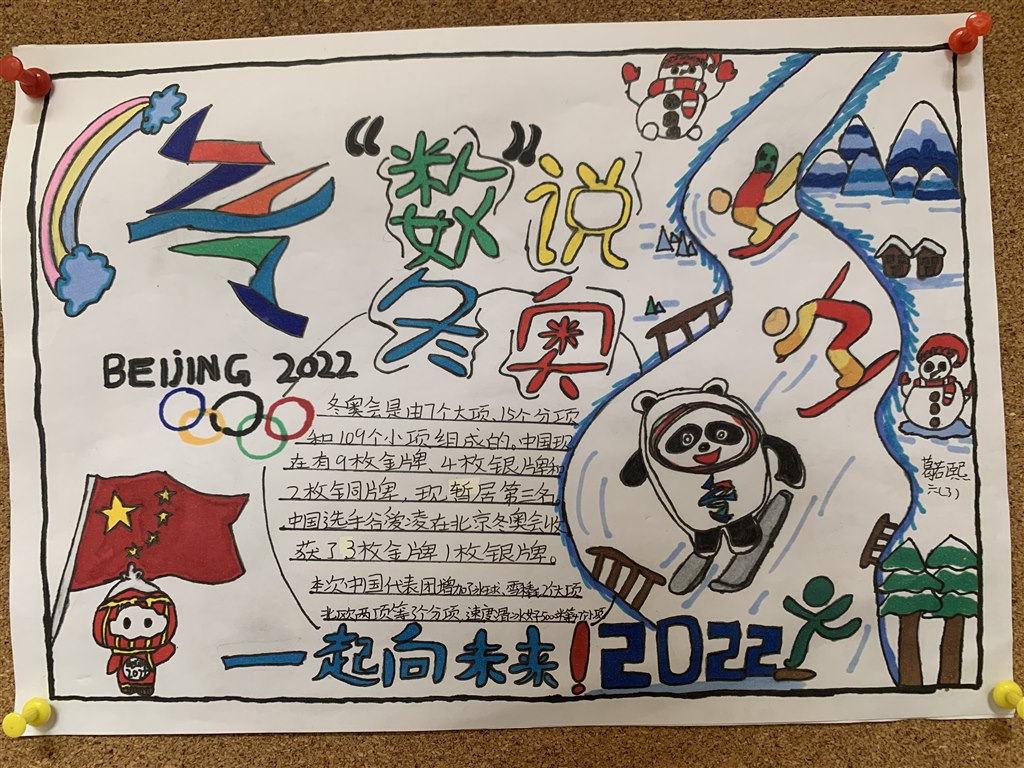 “数”说
冬奥
BEIJING 2022
冬奥会是由7个大项、15个分项
和109个小项组成的。中国现
在有9枚金牌、4枚银牌和
2枚铜牌，现暂居第三名。
中国选手谷爱凌在北京冬奥会收
获了3枚金牌1枚银牌。
本次中国代表团增加了冰球、雪橇2个大项
北欧两项等3个分项、速度滑冰女子500米等
葛若熙
六(3)
一起向未来！2022